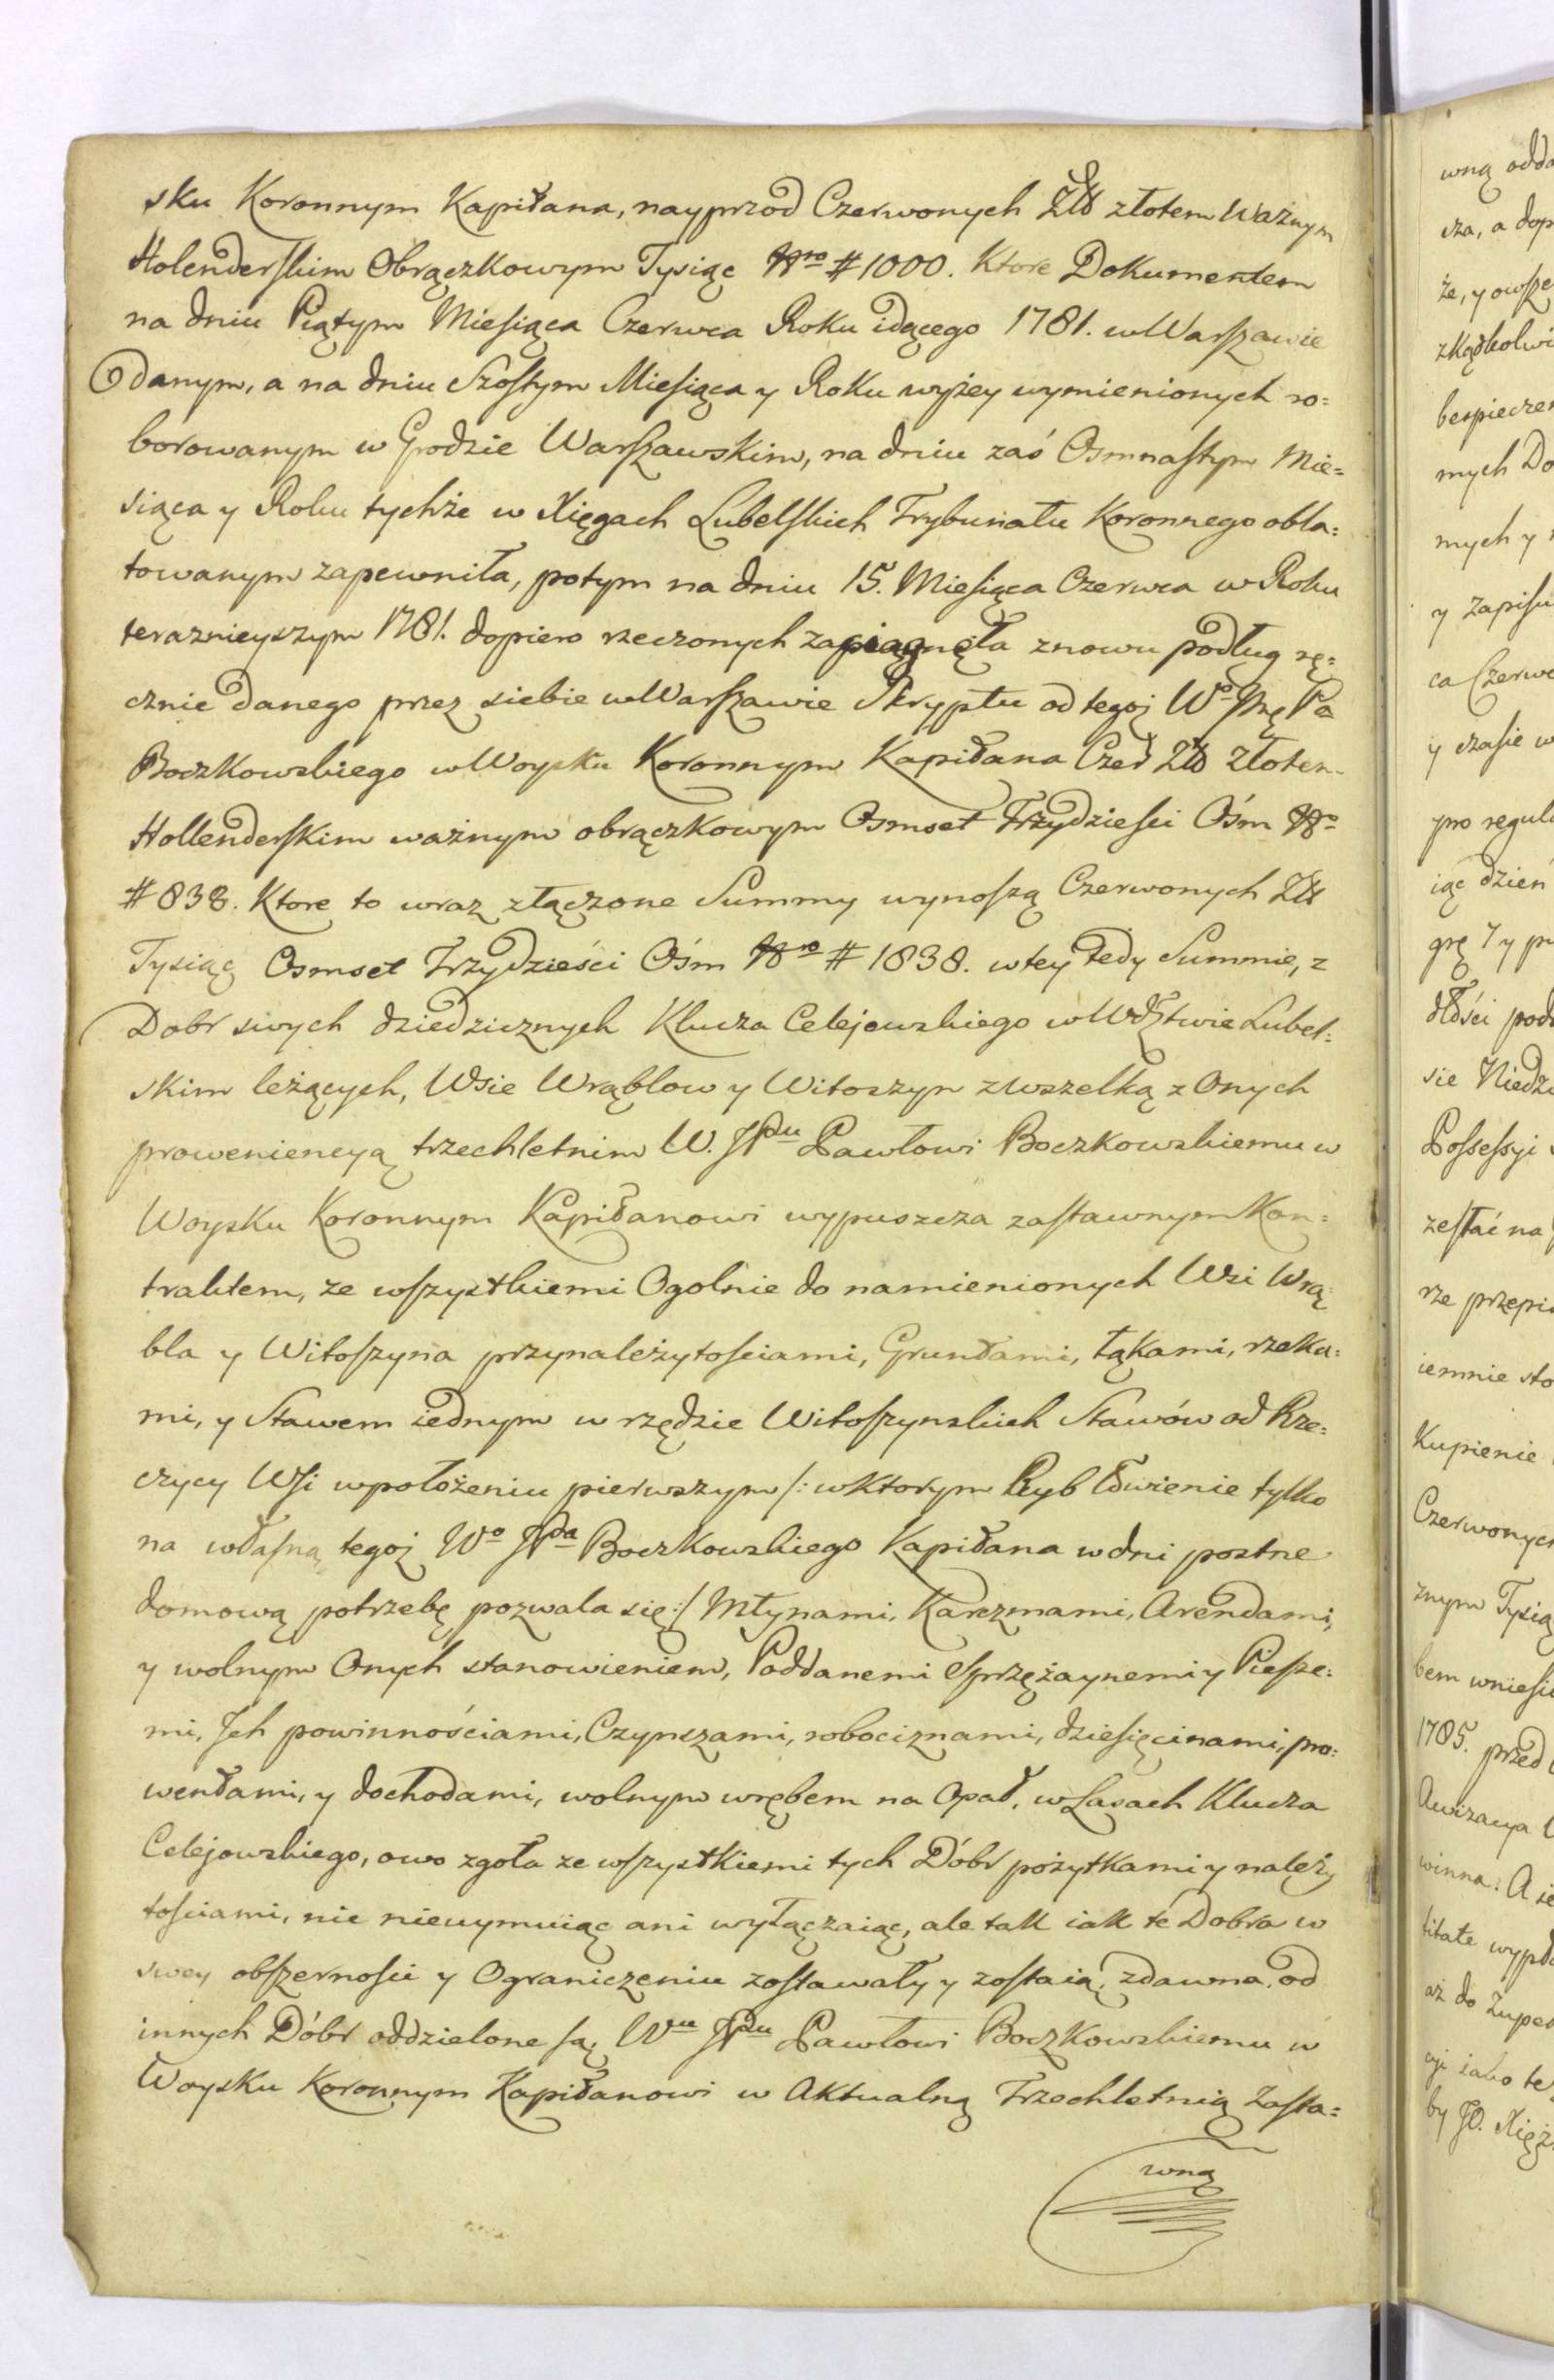 sku Koronnym Kapitana, nayprzod Czerwonych Złł złotem Ważnym
Holenderskim Obrączkowym Tysiąc Nro # 1000. Ktore Dokumentem
na dniu Piątym Miesiąca Czerwca Roku idącego 1781. w Warszawie
danym, a na dniu Szostym Miesiąca y Roku wyżey wymienionych ro=
borowanym w Grodzie Warszawskim, na dniu zaś Osmnastym Mie=
siąca y Roku tychże w Xięgach Lubelskich Trybunału Koronnego obla=
towanym zapewniła, potym na dniu 15. Miesiąca Czerwca w Roku
teraznieyszym 1781. dopiero rzeczonych zaciągnęła znowu podług rę=
cznie danego przez siebie w Warszawie Skryptu od tegoż Wo
Boczkowskiego w Woysku Koronnym Kapitana Czer Złł Złotem
Hollenderskim ważnym obrączkowym Osmset Trzydziesci Ośm No
# 838. Ktore to wraz złączone Summy wynoszą Czerwonych Złł
Tysiąc Osmset Trzydzieści Ośm Nro # 1838. w tey tedy Summie, z
Dobr swych dziedzicznych Klucza Celejowskiego w Wdztwie Lubel=
skim leżących, Wsie Wrąblow y Witoszyn z wszelką z Onych
prowenięncyą trzechletnim W. JPdu Pawłowi Boczkowskiemu w
Woysku Koronnym Kapitanowi wypuszcza zastawnym Kon=
traktem, ze wszystkiemi Ogolnie do namienionych Wsi Wrą=
bla y Witoszyna przynależytosciami, Gruntami, łąkami, rzeka=
mi, y Stawem iednym w rzędzie Witoszynskich Stawów od Rze=
czycy Wsi w położeniu pierwszym /: w ktorym Ryb łowienie tylko
na własną tegoż Wo JPda Boczkowskiego Kapitana w dni postne
domową potrzebę pozwala się :/ Młynami, Karczmami, Arendami,
y wolnym Onych stanowieniem, Poddanemi Sprzężaynemi y Piesze=
mi, Jch powinnościami, Czynszami, robociznami, dziesięcinami, pro=
wentami, y dochodami, wolnym wrębem na Opał, w Lasach Klucza
Celejowskiego, owo zgoła ze wszystkiemi tych Dóbr pożytkami y należy
tosciami, nic nieuymuiąc ani wyłączaiąc, ale tak iak te Dobra w
swey obszernosci y Ograniczeniu zostawały y zostaią, zdawna, od
innych Dóbr oddzielone są, Wu JPdu Pawłowi Boczkowskiemu w
Woysku Koronnym Kapitanowi w Aktualną Trzechletnią Zasta=
wną
wną odda
cza, a dop
że, y owsze
zkądkolwi
bespieczen
mych Do
mych y
y Zapisu
ca Czerwc
y czasie w
pro regula
iąc dzień
grę 7 y p
sie Niedz
Possessyi
zesłać na
rze przepi
iemnie sto
Kupienie
Czerwonych
znym Tysią
bem wniesi
1785. przed
Awizacya
winna: A ie
titate wypła
aż do Zupeł
cyi iako te
by JO. Xięż